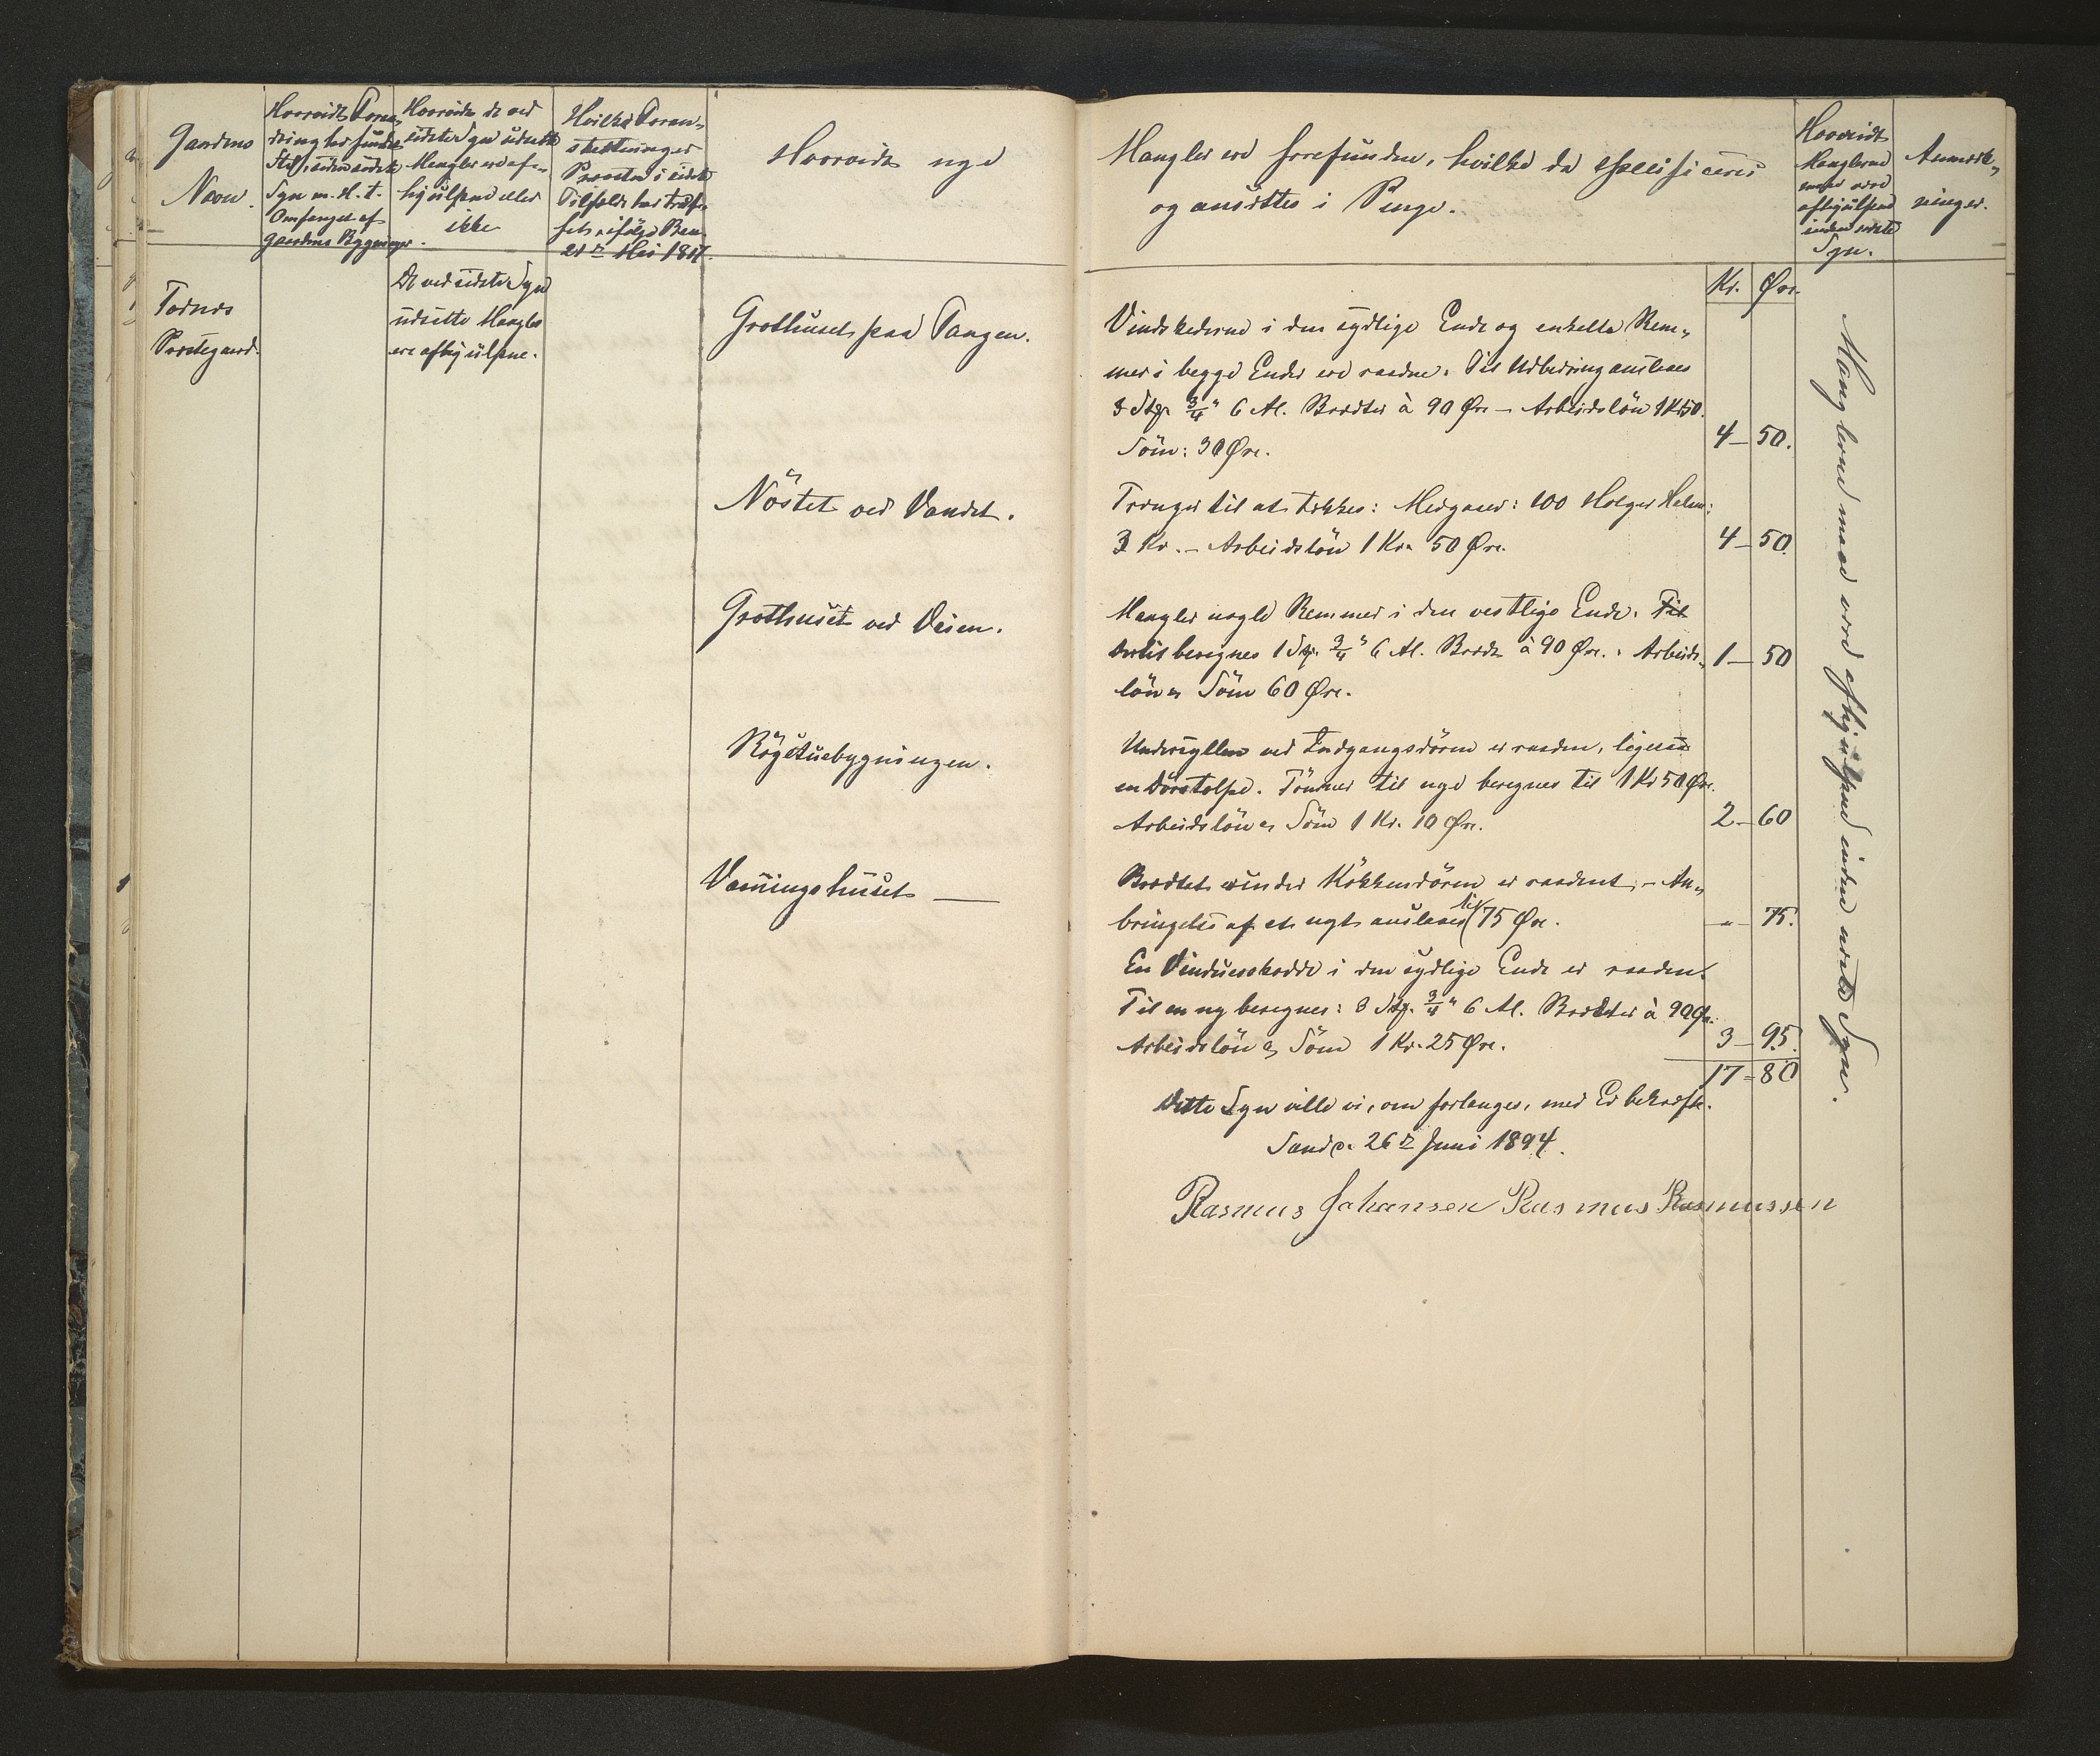 Gaardens
Navn.
Hvorvidt Foran-
dring har fundet
Sted siden sidste
Syn m. H. t.
Omfanget af
Gaardens Bygninger.
Hvorvidt de ved
sidste Syn udsatte
Mangler ere af-
hjulpne eller
ikke
Hvilke Foran-
staltninger
Provsten i sidste
Tilfælde har truf-
fet ifølge Res.
21de Mai 18
Hvorvidt nye
Mangler ere forefundne, hvilke da specificeres
og ansættes i Penge.
Hvorvidt
Manglerne
ere
afhjulpne
inden
Syn.
Anmærk-
ninger.
Præstegaard.
De ved sidste Syn
udsatte Mangler
ere afhjulpne.
Kr. Øre.
Grothuset paa Tangen.
Vindskederne i den sydlige Ende og enkelte Rem-
mer i begge Ender ere raadne. Til Udbedring ansees
3 Stkr 3/4" 6 Al. Bordter à 90 Øre – Arbeidsløn 1 Kr 50.
Söm: 30 Øre.
4 – 50.
Nöstet ved Vandet.
Trænger til at tækkes: Medgaaer: 100 Halm:
3 Kr. – Arbeidslön 1 Kr. 50 Øre.
4 – 50.
Grothuset ved Veien.
Mangler nogle Remmer i den vestlige Ende. Til
beregnes 1 Stk. 3/4" 6 Al. Bordt à 90 Øre. Arbeids-
lön og Söm 60 Øre.
1 – 50
Rögstuebygningen.
Undersyllen ved Indgangsdören er raaden, ligesaa
en Dörstolpe. Tömmer til nye beregnes til 1 Kr 50 Øre.
Arbeidslön og Söm 1 Kr. 10 Øre.
2 – 60
Vaaningshuset —
Bordtet under Kökkendören er raadent, – An-
bringelse af et nyt ansees til 75 Øre.
" – 75.
En Vinduesskodde i den sydlige Ende er raaden.
Til en ny beregnes: 3 Stk. 3/4" 6 Al. Bordter à 90 Øre.
Arbeidslön og Söm 1 Kr. 25 Øre.
3 – 95.
17 – 80
Dette Syn ville vi, om forlanges, med Ed bekræfte.
Sande 26de Juni 1894.
Rasmus Johansen Rasmus Rasmussen
Manglerne maa være afhjulpne inden næste Syn.